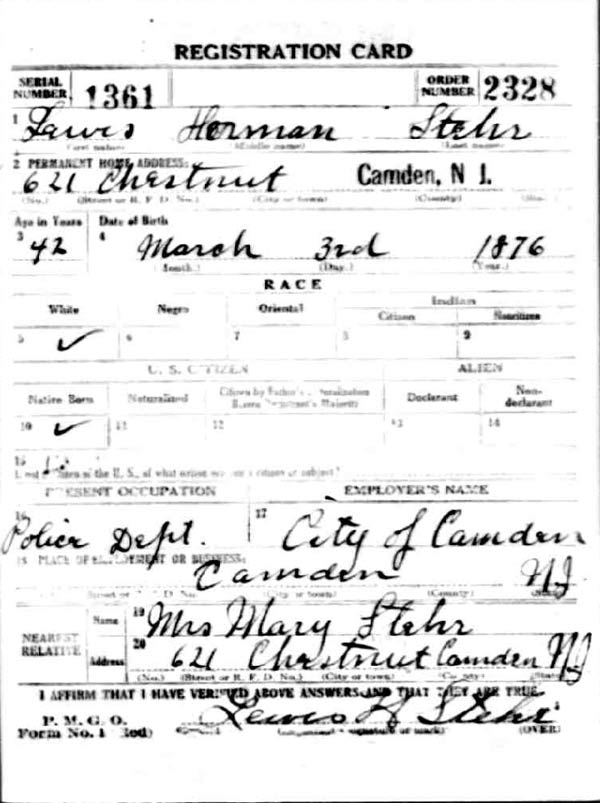 REGISTRATION CARD
SERIAL NUMBER 1361 ORDER NUMBER 2328
1 Lewis Herman Stehr
(First name) (Middle name) (Last name)
2 PERMANENT HOME ADDRESS:
621 Chestnut Camden, N J.
(No.) (Street or R. F. D. No.) (City or town) (County) (State)
Age in Years Date of Birth
3 42 4 March 3rd 1876
(Month.) (Day.) (Year.)
RACE
White Negro Oriental Indian
Citizen Noncitizen
5 ✓ 6 7 8 9
U. S. CITIZEN ALIEN
Native Born Naturalized Citizen by Father's Naturalization Before Registrant's Majority Declarant Non-declarant
10 ✓ 11 12 13 14
15
of the U. S., of what nation citizen or subject?
PRESENT OCCUPATION EMPLOYER'S NAME
16 Police Dept. 17 City of Camden
18 PLACE OF EMPLOYMENT OR BUSINESS:
Camden NJ
(Street or R. F. D. No.) (City or town) (County) (State)
NEAREST RELATIVE Name 19 Mrs Mary Stehr
Address 20 621 Chestnut Camden NJ
(No.) (Street or R. F. D. No.) (City or town) (County) (State)
I AFFIRM THAT I HAVE VERIFIED ABOVE ANSWERS AND THAT THEY ARE TRUE.
P. M. G. O.
Form No. 1 (Red) Lewis H Stehr
(Registrant's signature or mark) (OVER)